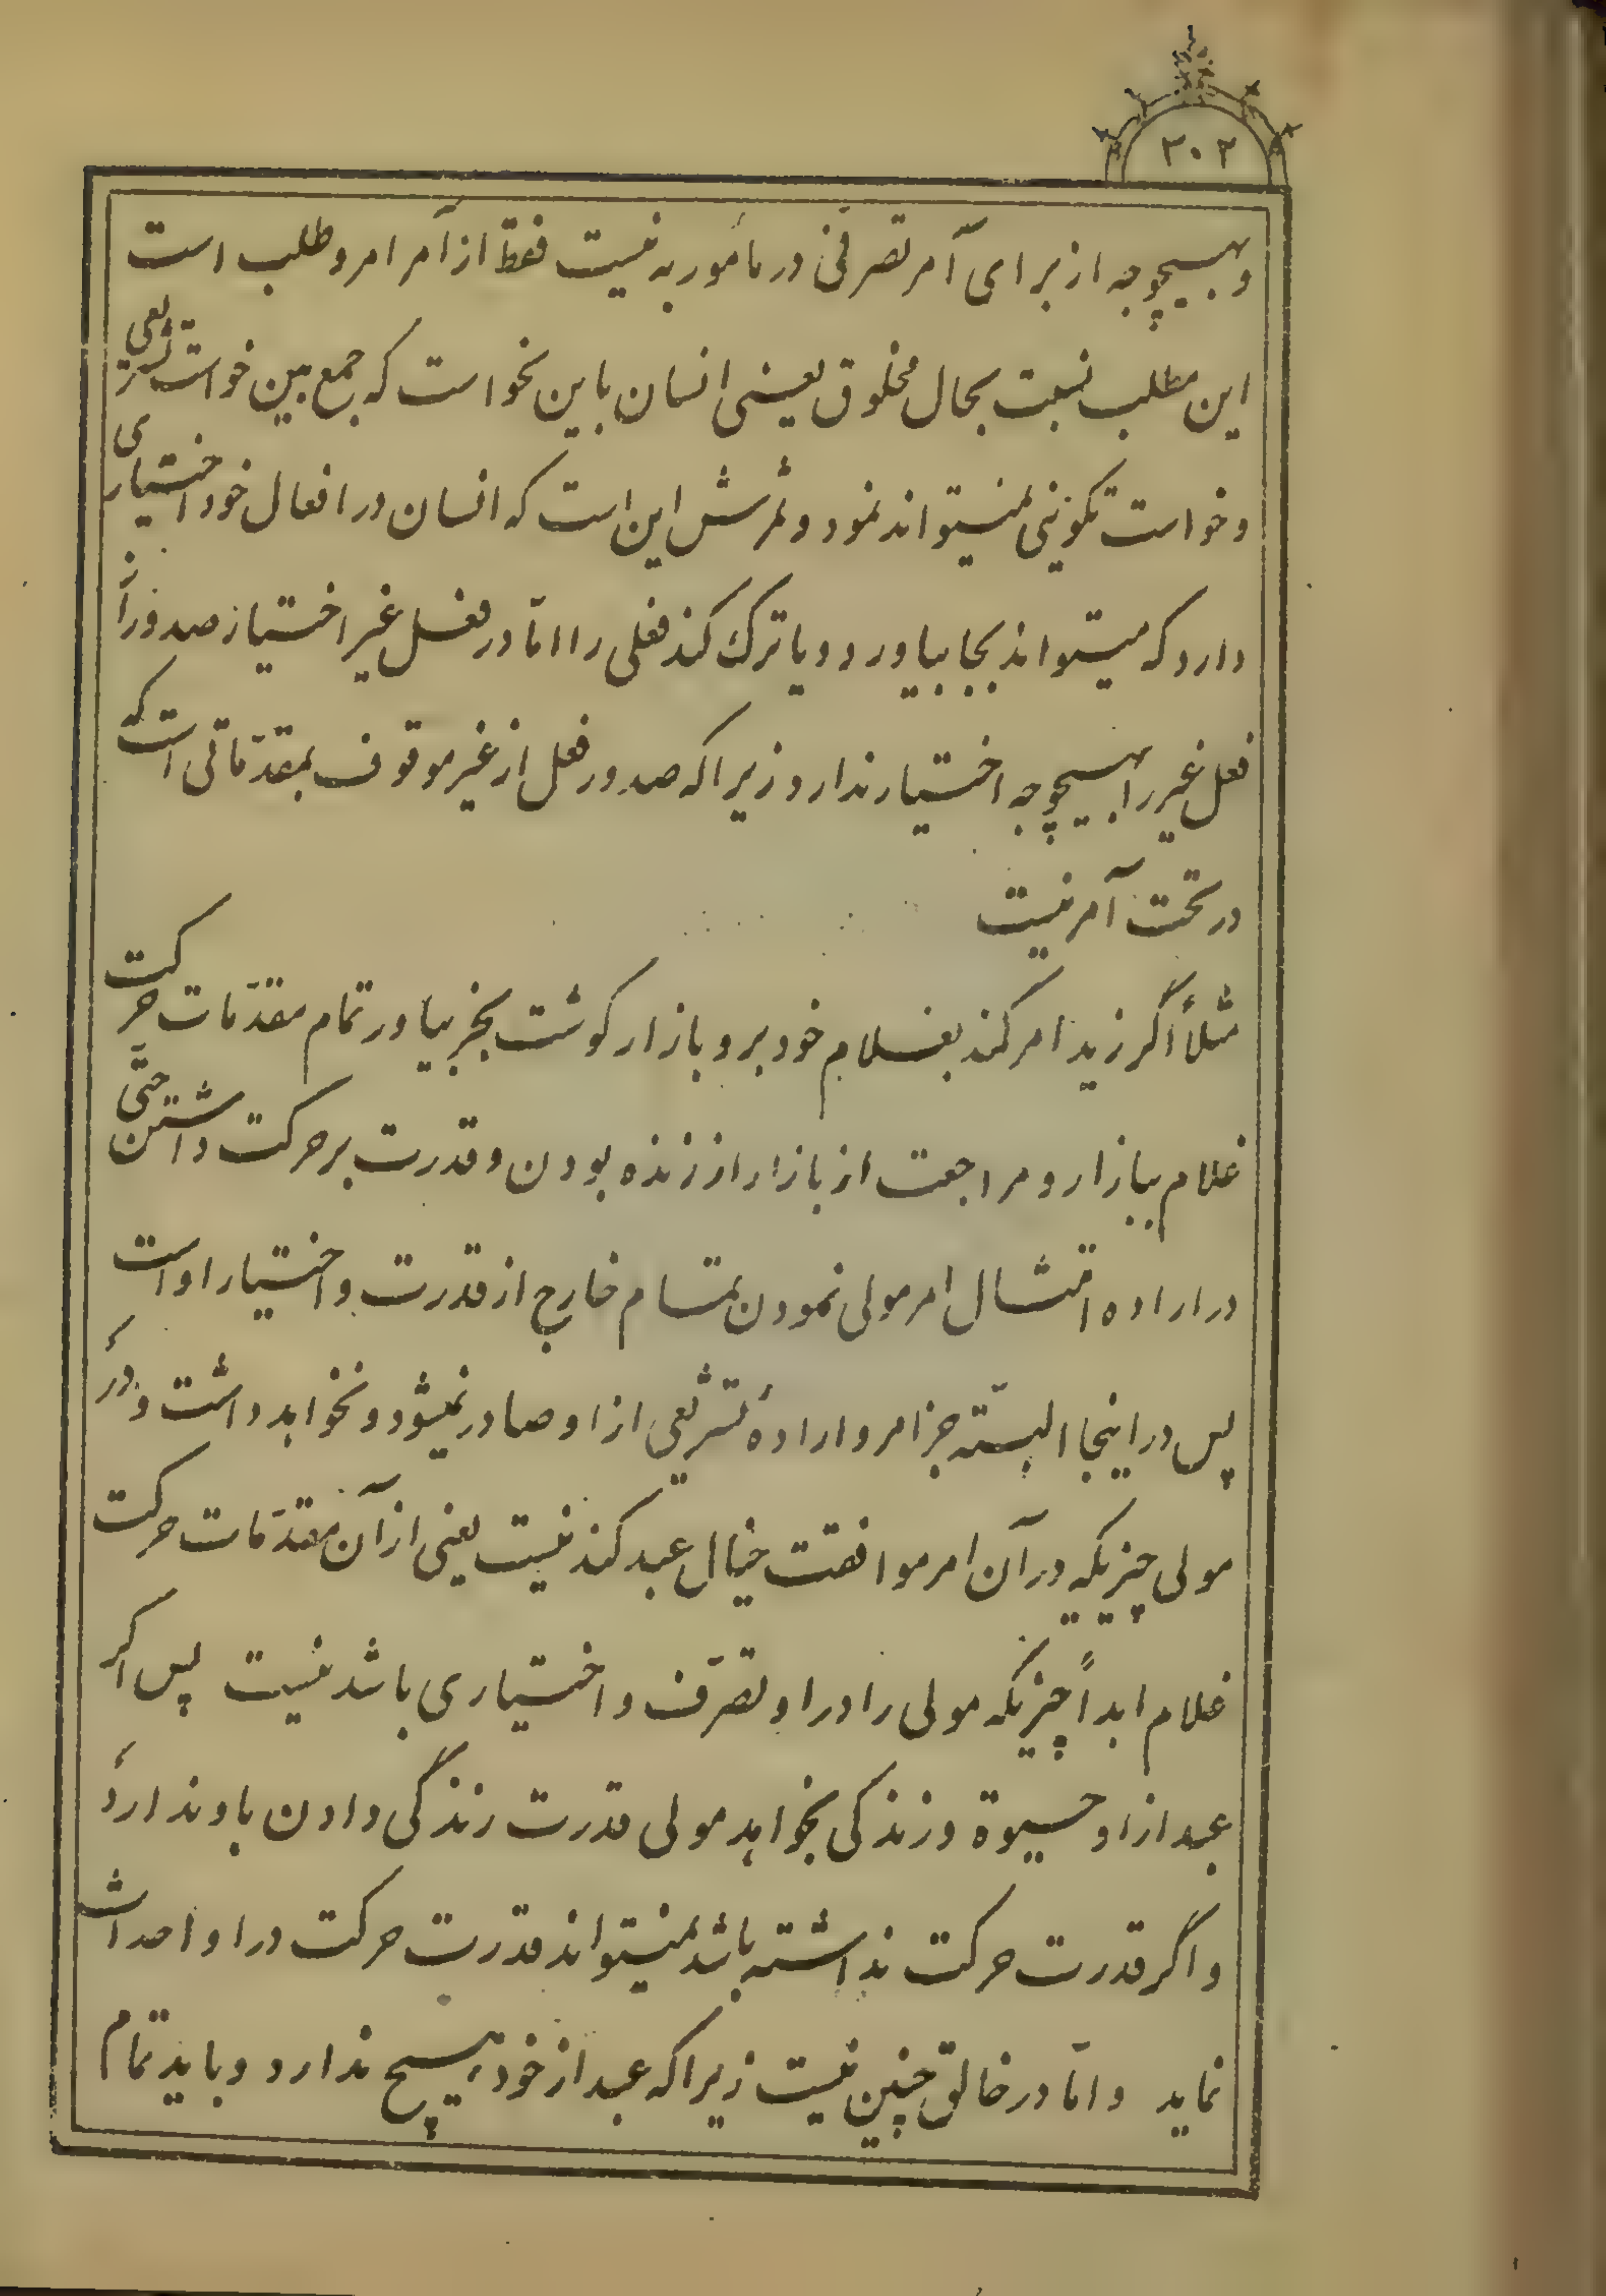 ۳۰۲
وبهیچوجه از برای آمر تصرفی در مأمور به نیست فقط از آمر امر و طلب است
این مطلب نسبت بحال مخلوق یعنی انسان باین نحو است که جمع بین خواست تشریعی
وخواست تکوینی نمیتواند نمود و ثمرش این است که انسان در افعال خود اختیاری
دارد که میتواند بجا بیاورد و یا ترک کند فعلی را امّا در فعل غیر اختیار صدور از
فعل غیر را بهیچوجه اختیار ندارد زیرا که صدور فعل از غیر موقوف بمقدّماتی است که
در تحت آمر نیست
مثلاً اگر زید امر کند بغلام خود برو بازار کوشت بخر بیاور تمام مقدّمات حرکت
غلام ببازار و مراجعت از بازار از زنده بودن و قدرت بر حرکت داشتن حتّی
در اراده امتثال امر مولی نمودن بتمام خارج از قدرت و اختیار او است
پس در اینجا البتّه جز امر و ارادهٔ تشریعی از او صادر نمیشود و نخواهد داشت و در
مولی چیزیکه در آن امر موافقت خیال عبد کند نیست یعنی از آن مقدّمات حرکت
غلام ابداً چیزیکه مولی را در او تصرّف و اختیاری باشد نیست پس اکر
عبد از او حیوة و زندکی بخواهد مولی قدرت زندگی دادن باو ندارد
و اگر قدرت حرکت نداشته باشد نمیتواند قدرت حرکت در او احداث
نماید و امّا در خالق چنین نیست زیرا که عبد از خود هیچ ندارد و باید تمام